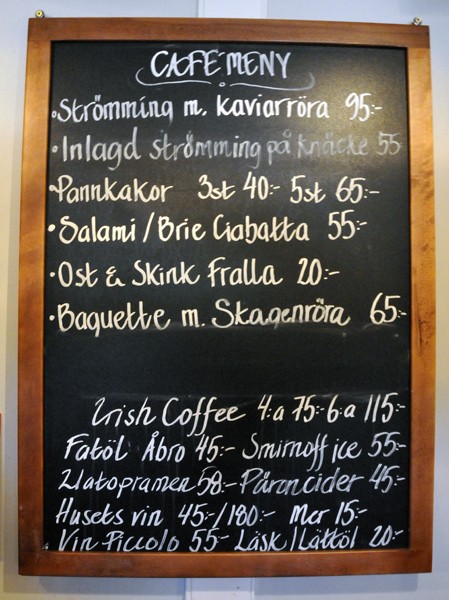 CAFÉ MENY
• Strömming m. kaviarröra 95:-
• Inlagd strömming på knäcke 55
• Pannkakor 3st 40:- 5st 65:-
• Salami / Brie Ciabatta 55:-
• Ost & Skink Fralla 20:-
• Baguette m. Skagenröra 65:-
Irish Coffee 4:a 75:- 6:a 115:-
Fatöl Åbro 45:- Smirnoff ice 55:-
Zlatopramen 58:- Päroncider 45:-
Husets vin 45:- / 180:- Mer 15:-
Vin Piccolo 55:- Läsk / Lättöl 20:-